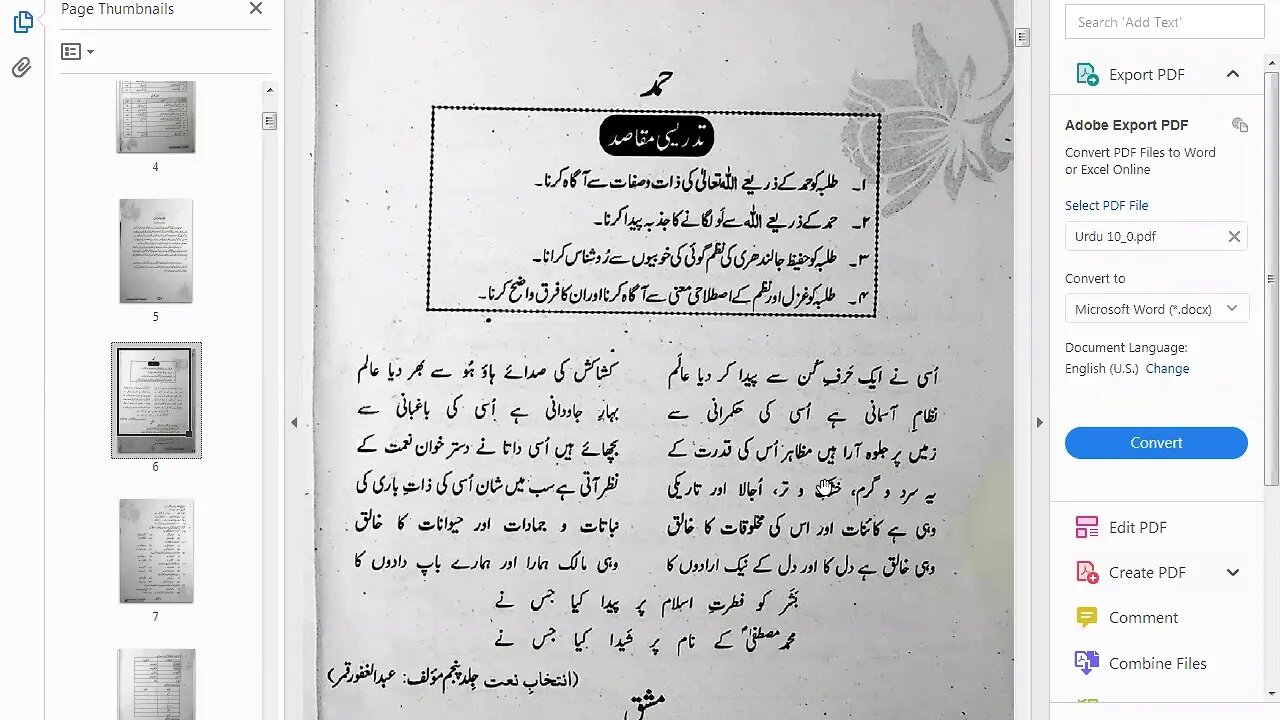 Page Thumbnails
4
5
6
7
حمد
تدریسی مقاصد
۱۔ طلبہ کو حمد کے ذریعے اللہ تعالیٰ کی ذات و صفات سے آگاہ کرنا۔
۲۔ حمد کے ذریعے اللہ سے لَو لگانے کا جذبہ پیدا کرنا۔
۳۔ طلبہ کو حفیظ جالندھری کی نظم گوئی کی خوبیوں سے رُوشناس کرانا۔
۴۔ طلبہ کو غزل اور نظم کے اصطلاحی معنی سے آگاہ کرنا اور ان کا فرق واضح کرنا۔
اُسی نے ایک حَرفِ کُن سے پیدا کر دیا عالَم کشاکش کی صدائے ہاؤ ہُو سے بھر دیا عالم
نظامِ آسمانی ہے اُسی کی حکمرانی سے بہارِ جاودانی ہے اُسی کی باغبانی سے
زمیں پر جلوہ آرا ہیں مظاہر اُس کی قدرت کے بچھائے ہیں اُسی داتا نے دستر خوان نعمت کے
یہ سرد و گرم، و تر، اُجالا اور تاریکی نظر آتی ہے سب میں شان اُسی کی ذاتِ باری کی
وہی ہے کائنات اور اس کی مخلوقات کا خالق نباتات و جمادات اور حیوانات کا خالق
وہی خالق ہے دل کا اور دل کے نیک ارادوں کا وہی مالک ہمارا اور ہمارے باپ دادوں کا
بَشَر کو فطرتِ اسلام پر پیدا کیا جس نے
محمد مصطفیٰؐ کے نام پر شیدا کیا جس نے
(انتخابِ نعت جِلد پنجم مؤلف: عبدالغفور قمر)
مشق
Search 'Add Text'
Export PDF
Adobe Export PDF
Convert PDF Files to Word
or Excel Online
Select PDF File
Urdu 10_0.pdf
Convert to
Microsoft Word (*.docx)
Document Language:
English (U.S.) Change
Convert
Edit PDF
Create PDF
Comment
Combine Files